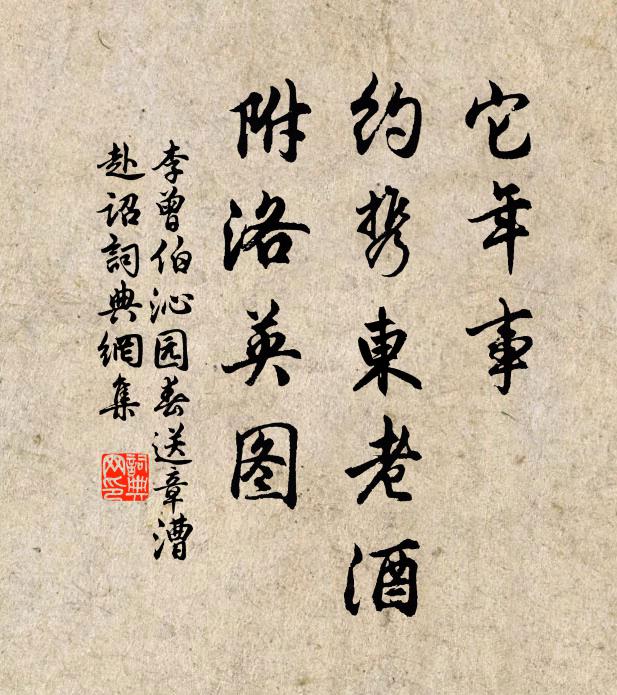 它年事
约携東老酒
附洛英图
李曾伯沁园春送章漕
赴诏詞典網集
詞典网印